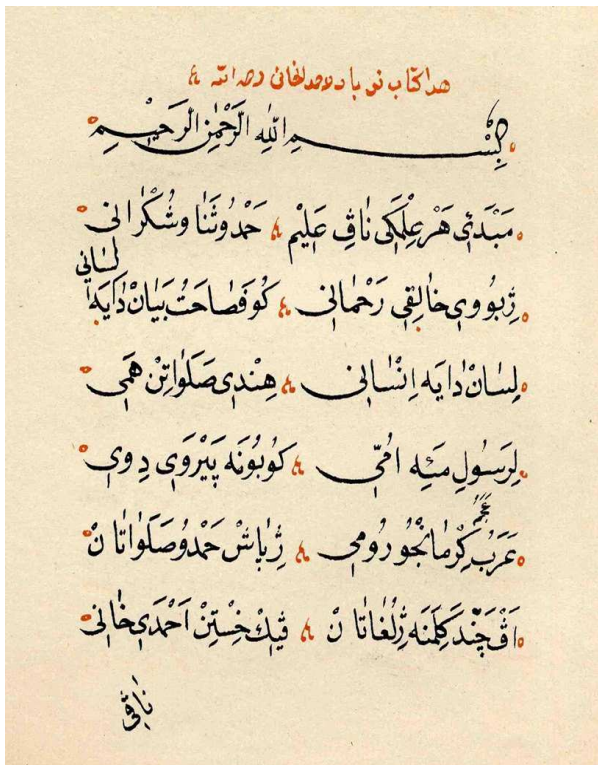 هذا كتاب نوبار ملا احمد الخاني رحمه الله
بِسْمِ اللهِ الرَّحْمٰنِ الرَّحِيمِ
مَبْدَئِ هَرْ عِلْمَكِي نَاڤِ عَلِيْم حَمْدُ وثَنَا وشُكْرَانِي
ژِبُووِي خَالِقِي رَحْمَانِي كُو فَصَاحَتُ بَيَانْ دَايَه
لِسَاني
لِسَانْ دَايَه اِنْسَانِي هِنْدِي صَلَوَاتِنْ هَمَي
لِرَسُولِ مَيِه اُمِّي كُو بُونَه پَيْرَوَي دِوِي
عَرَبُ كُرْمَانْجُو رُومِي ژِپَاشْ حَمْدُ صَلَوَاتَانْ
عَجَمُ
اَڤْ چَنْد كَلِمَنَه ژِلُغَاتَانْ ڤَيْكْ خِسْتِنْ اَحْمَدَي خَانِي
ناڤي